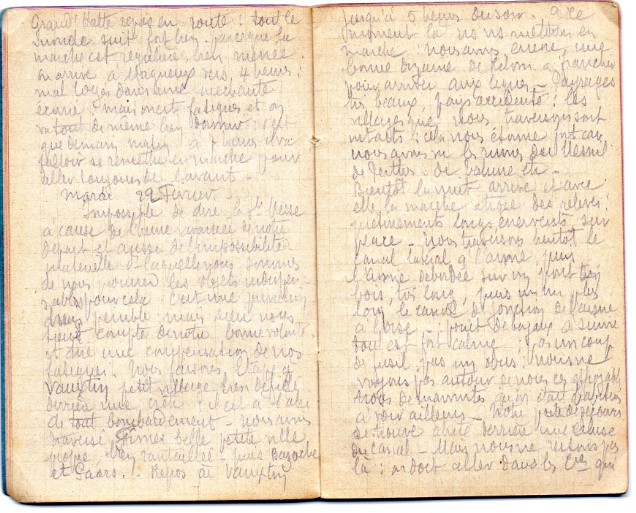 Grand' Halte repas en route : tout le
monde suit fort bien parce que la
marche est régulière, bien menée
on arrive à Magneux vers 4 heures :
mal logés dans une méchante
écurie : mais on est fatigués et on
va tout de même bien dormir : c'est
que demain matin à 7 heures il va
falloir se remettre en marche pour
aller toujours de l'avant. -
Mardi 29 Février.
Impossible de dire la Ste Messe
à cause de l'heure avancée de notre
départ et aussi de l'impossibilité
matérielle dans laquelle nous sommes
de nous procurer les objets indispen-
sables pour cela : c'est une privation
bien pénible mais Dieu nous
tient compte de notre bonne volonté
et une compensation de nos
fatigues. Nous faisons étape à
Vauxtin petit village bien
derrière une crête : il est à l'abri
de tout bombardement - nous avons
traversé Fismes belle petite ville
propre bien puis Bazoches
et . - Repos à Vauxtin
jusqu'à 5 heures du soir. - A ce
moment là nous nous mettons en
marche : nous avons encore une
bonne dizaine de kilom à franchir
pour arriver aux lignes - Paysages
très beaux, pays accidenté : les
villages que nous traversons sont
intacts : cela nous étonne fort car
nous avons vu les ruines du Mesnil
de Perthes de etc -
Bientôt la nuit arrive, et avec
elle la marche et
longs énervants, sur
place - nous traversons bientôt le
canal latéral à l'Aisne, puis
l'Aisne débordée sur un pont
bois, très long, puis un peu plus
loin le canal de jonction de l'Aisne
à l'Oise - point de à suivre
tout est fort calme : pas un coup
de fusil pas un obus : nous ne
voyons pas autour de nous ces
trous de marmites qu'on était habitués
à voir ailleurs - Notre poste de secours
se trouve abrité derrière une écluse
du canal - Mais nous ne restons pas
là : on doit aller dans les Cies qui